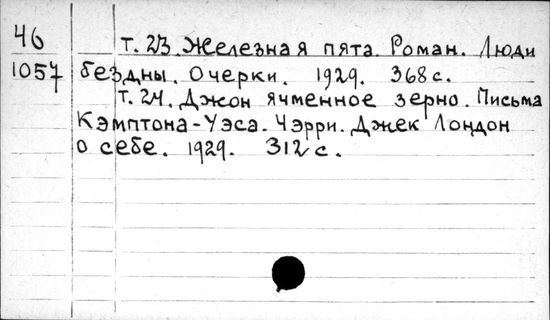 46
1057
Т. 23. Железная пята. Роман. Люди
бездны. Очерки. 1929. 368 с.
Т. 24. Джон ячменное зерно. Письма
Кэмптона-Уэса. Чэрри. Джек Лондон
о себе. 1929. 312 с.